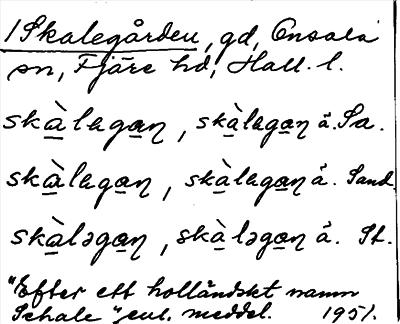 1 Skalegården, gd, Onsala
sn, Fjäre hd, Hall. l.
skàlagan, skàlagan å. Sa.
skàlagan, skàlagan å. Sand.
skàləgan, skàləgan å. St.
"Efter ett holländskt namn
Schale" enl. meddel. 1951.